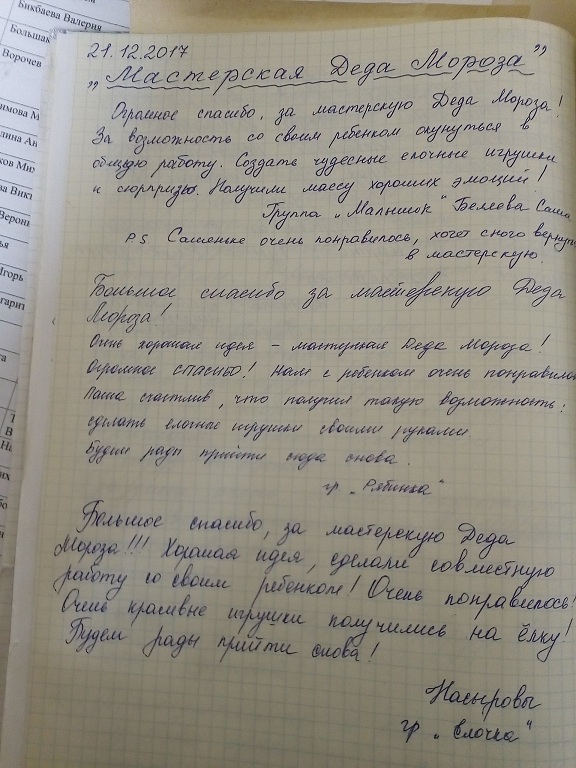 Бикбаева Валерия
Большак
Ворочев
имова М
лина Ан
ков Ми
ва Викт
Верони
ья
Игорь
гарит
21.12.2017
„Мастерская Деда Мороза”
Огромное спасибо, за мастерскую Деда Мороза!
За возможность со своим ребенком окунуться в
общую работу. Создать чудесные елочные игрушки
и сюрпризы. Получили массу хороших эмоций!
Группа „Малышок" Белеева Саша
P.S Сашеньке очень понравилось, хочет снова вернуть
в мастерскую.
Большое спасибо за мастерскую Деда
Мороза!
Очень хорошая идея – Деда Мороза!
Огромное СПАСИБО! Нам с ребенком очень понравилось
Паша счастлив, что получил такую возможность:
сделать елочные игрушки своими руками.
Будем рады прийти сюда снова.
гр „Рябинка"
Большое спасибо, за мастерскую Деда
Мороза!!! Хорошая идея, сделали совместную
работу со своим ребенком! Очень понравилось!
Очень красивые игрушки получились на ёлку!
Будем рады прийти снова!
Насыровы
гр „Елочка"